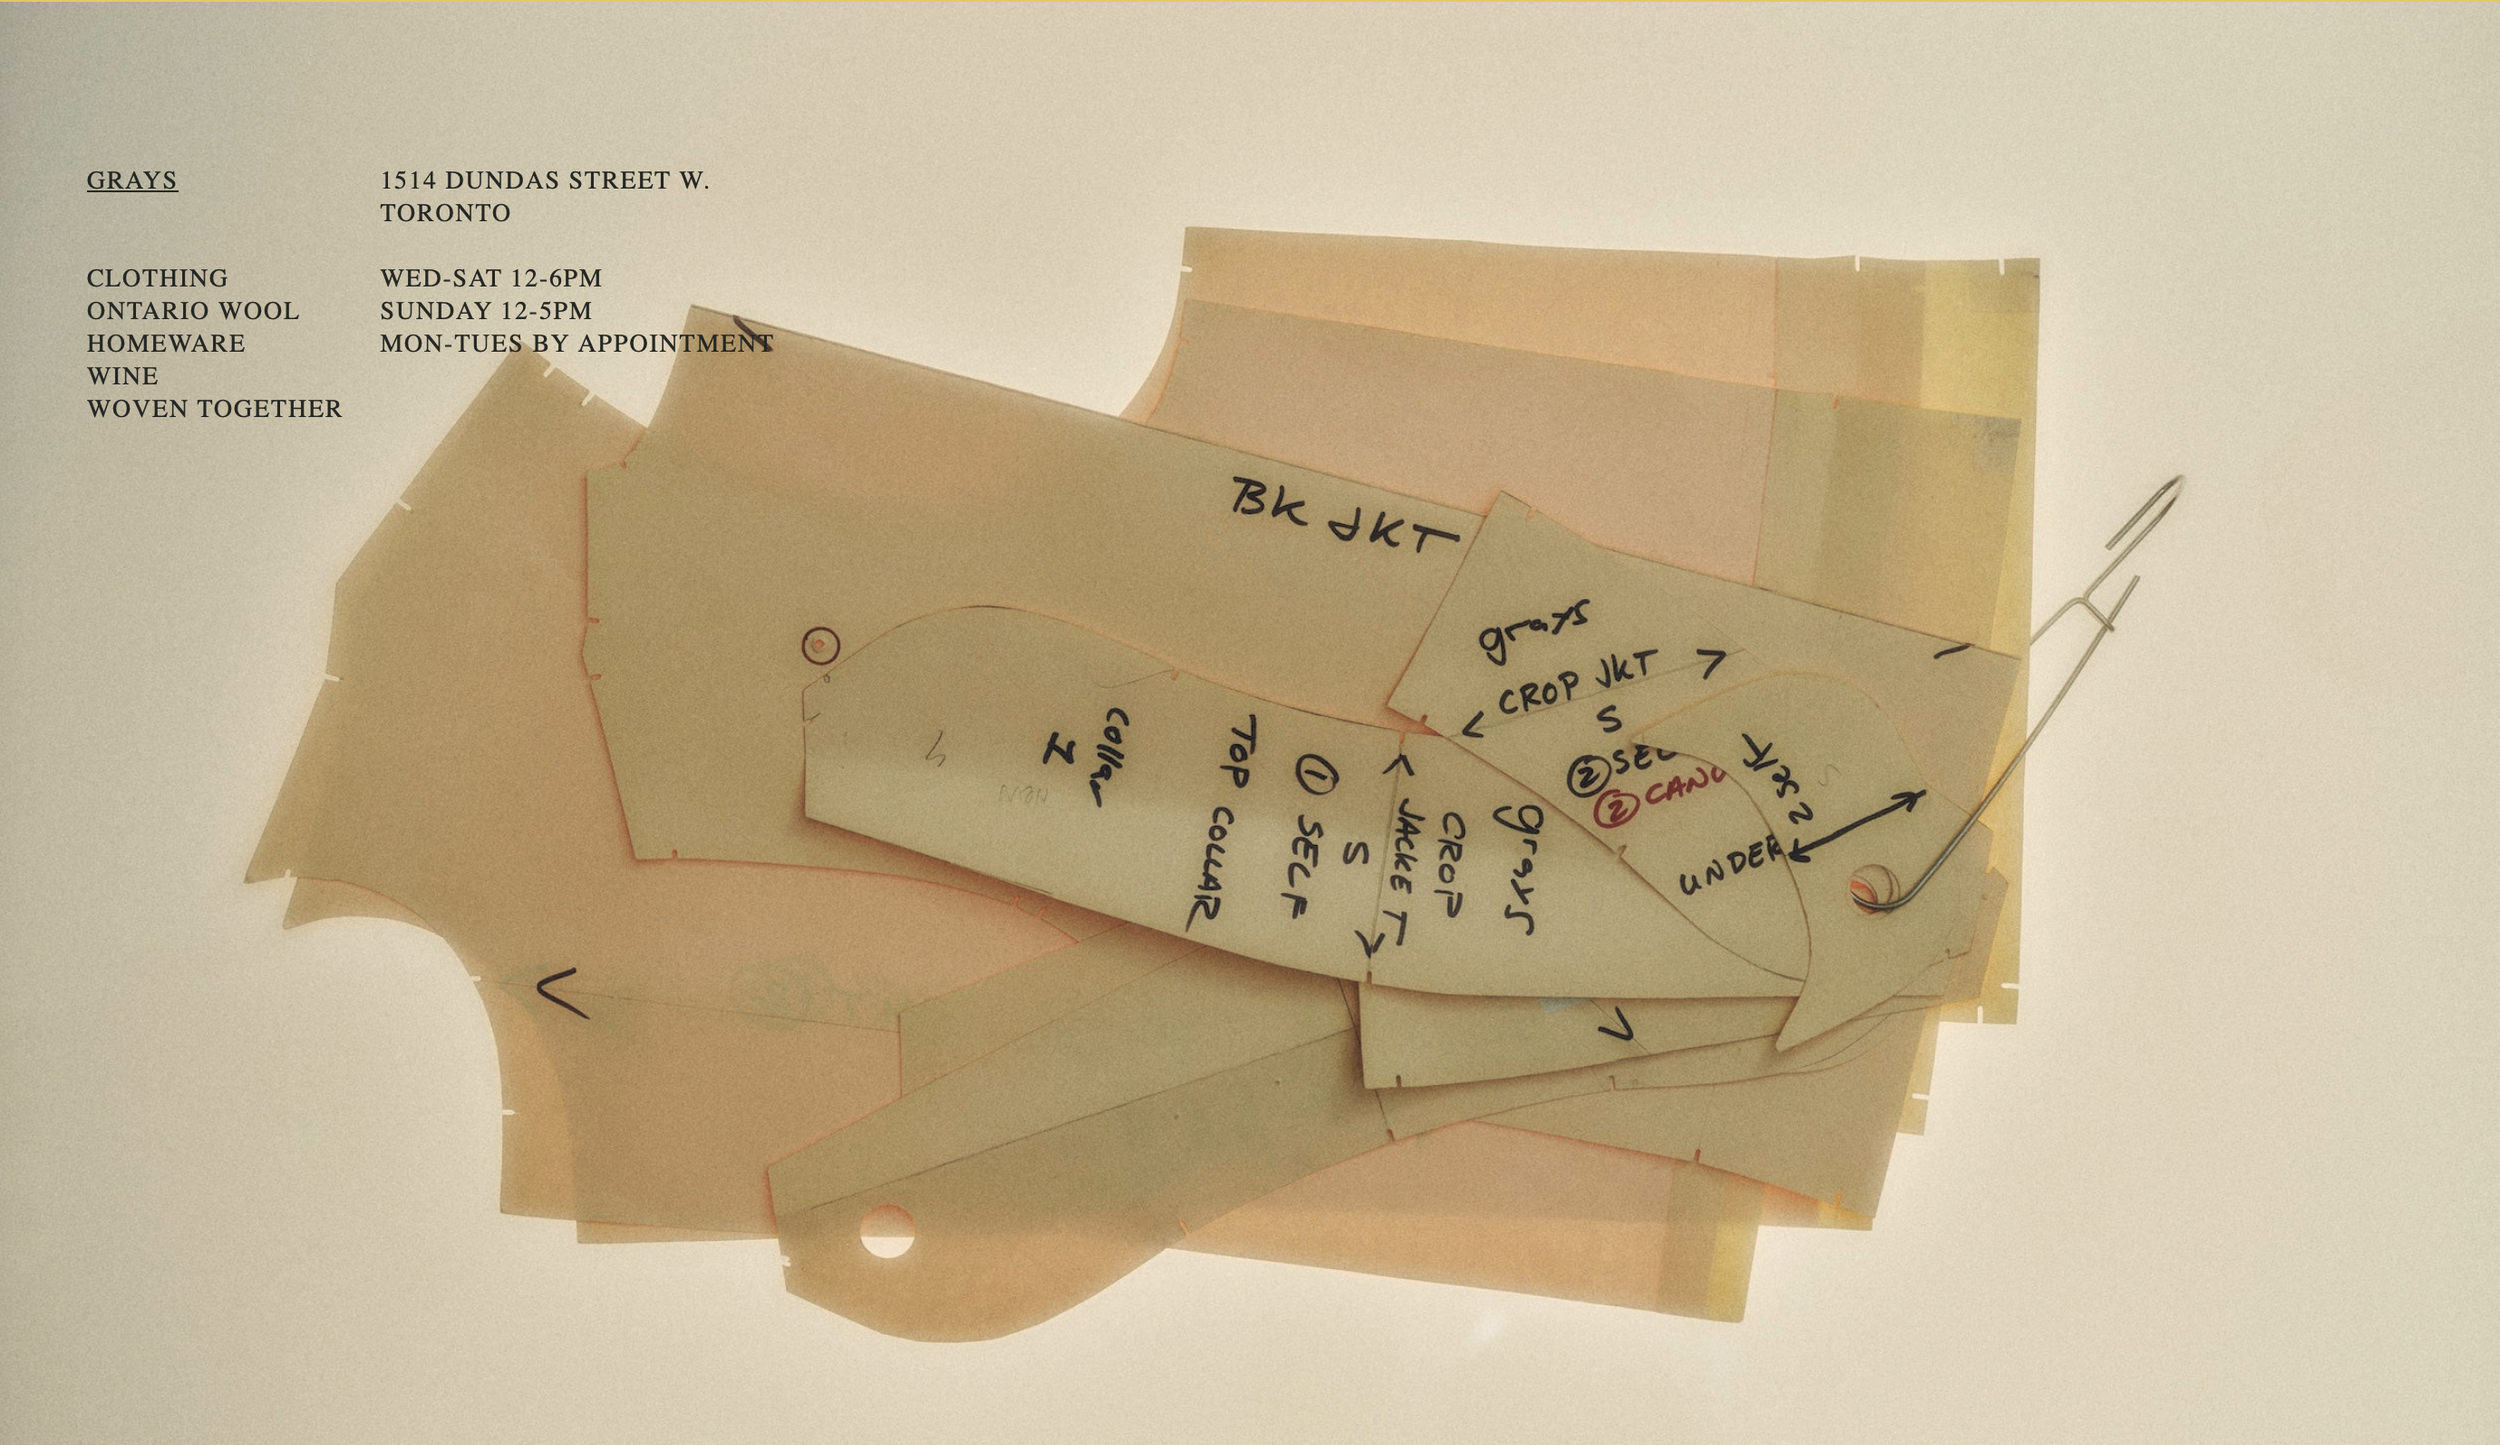 GRAYS
1514 DUNDAS STREET W.
TORONTO
CLOTHING
ONTARIO WOOL
HOMEWARE
WINE
WOVEN TOGETHER
WED-SAT 12-6PM
SUNDAY 12-5PM
MON-TUES BY APPOINTMENT
BK JKT
grays
CROP JKT
S
② SEL
② CANV
2 SELF
UNDER
S
grays
CROP
JACKET
S
① SELF
TOP COLLAR
Collar
I
S